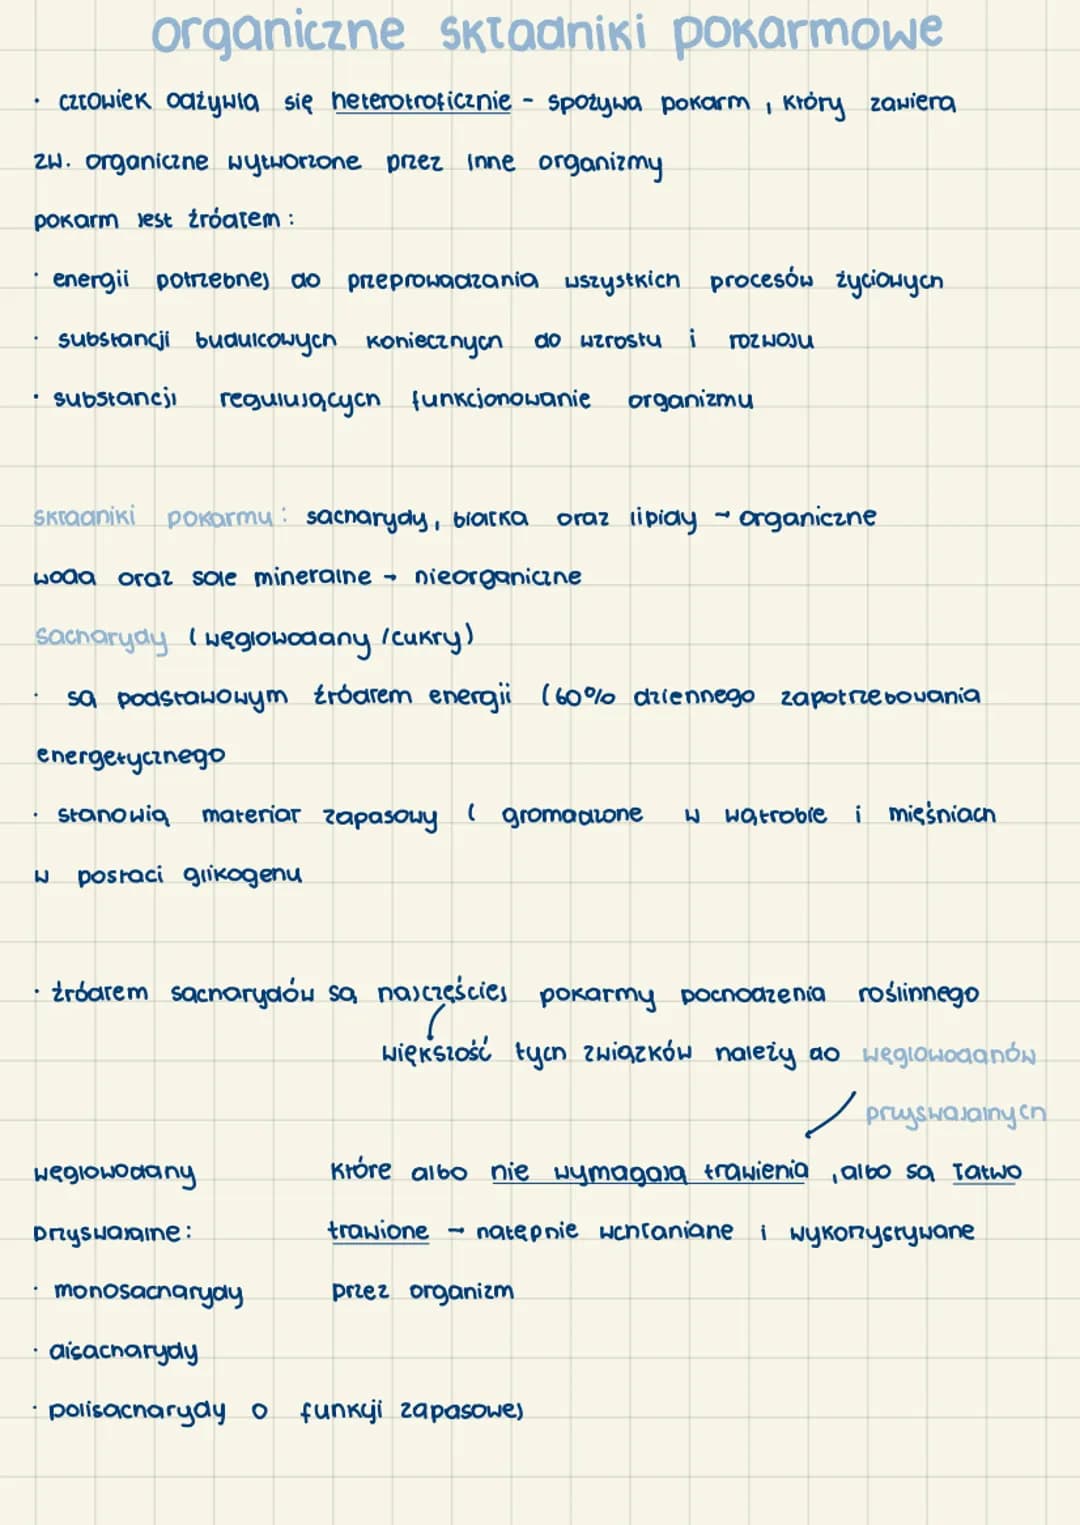 organiczne składniki pokarmowe
· człowiek odżywia się heterotroficznie - spożywa pokarm, który zawiera
zw. organiczne wytworzone przez inne organizmy
pokarm jest źródłem:
· energii potrzebnej do przeprowadzania wszystkich procesów życiowych
· substancji budulcowych koniecznych do wzrostu i rozwoju
· substancji regulujących funkcjonowanie organizmu
składniki pokarmu: sacharydy, białka oraz lipidy → organiczne
woda oraz sole mineralne → nieorganiczne
sacharydy (węglowodany /cukry)
· są podstawowym źródłem energii (60% dziennego zapotrzebowania
energetycznego
· stanowią materiał zapasowy ( gromadzone w wątrobie i mięśniach
w postaci glikogenu
· źródłem sacharydów są najczęściej pokarmy pochodzenia roślinnego
większość tych związków należy do węglowodanów
przyswajalnych
węglowodany które albo nie wymagają trawienia, albo są łatwo
przyswajalne: trawione → natępnie wchłaniane i wykorzystywane
· monosacharydy przez organizm
· disacharydy
· polisacharydy o funkcji zapasowej